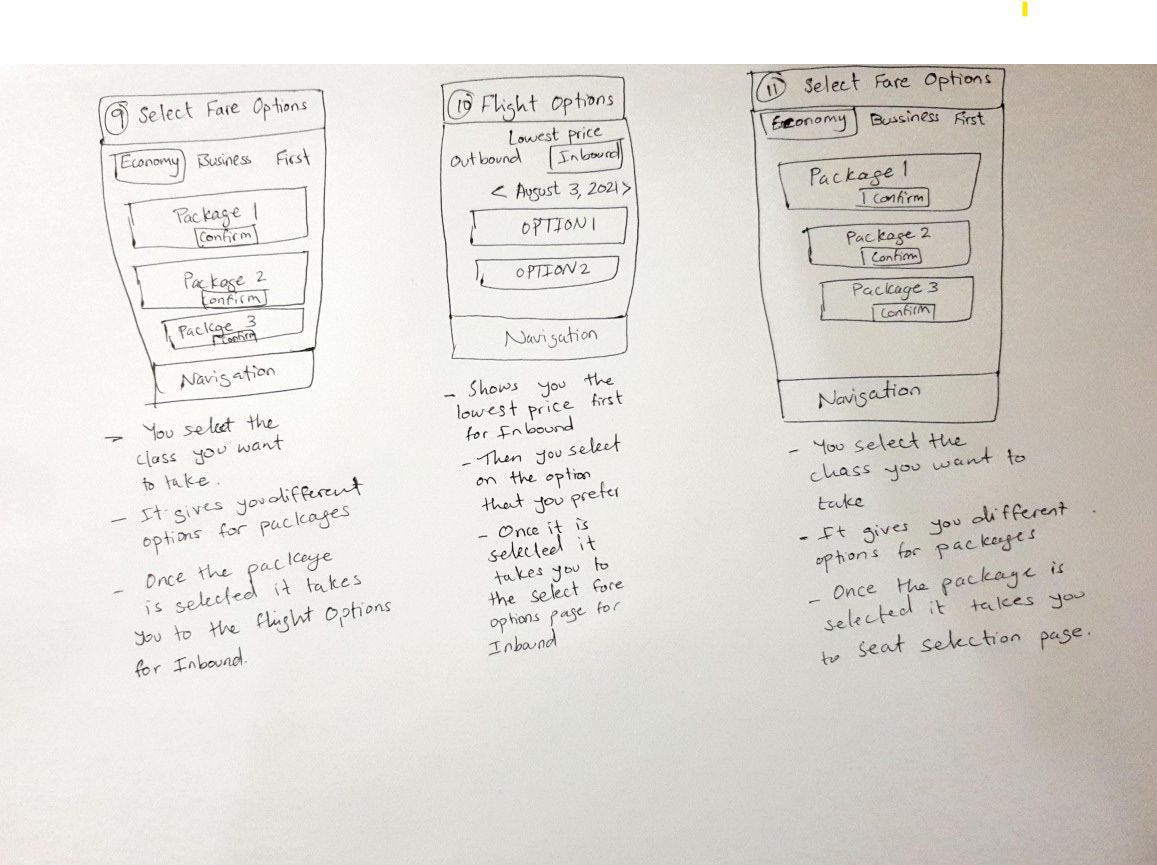 9 Select Fare Options
Economy Business First
Package 1
Confirm
Package 2
Confirm
Package 3
Confirm
Navigation
- You select the
class you want
to take.
- It gives you different
options for packages
- Once the package
is selected it takes
you to the flight Options
for Inbound.
10 Flight Options
Lowest price
Outbound Inbound
< August 3, 2021 >
OPTION 1
OPTION 2
Navigation
- Shows you the
lowest price first
for Inbound
- Then you select
on the option
that you prefer
- Once it is
selected it
takes you to
the select fare
options page for
Inbound
11 Select Fare Options
Economy Bussiness First
Package 1
Confirm
Package 2
Confirm
Package 3
Confirm
Navigation
- You select the
class you want to
take
- It gives you different
options for packages
- Once the package is
selected it takes you
to seat selection page.